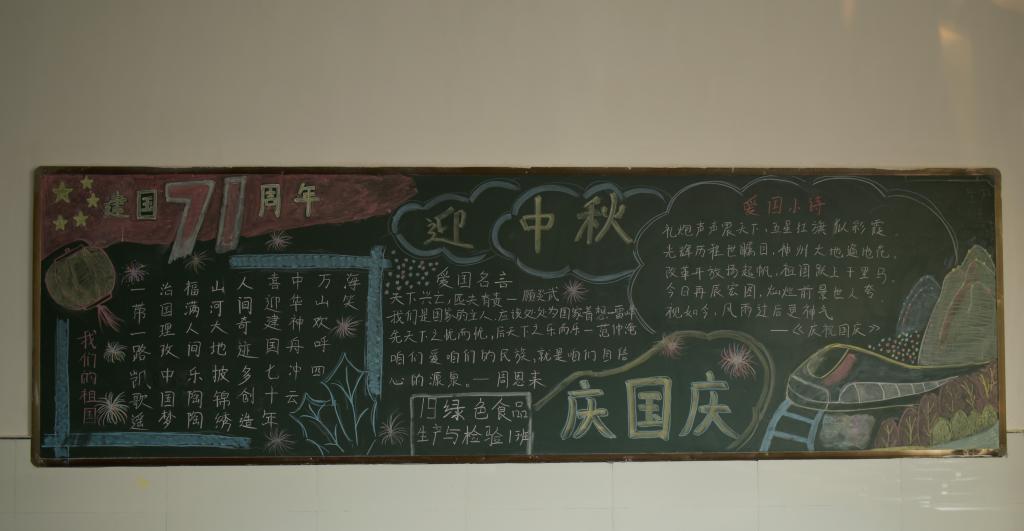 建国71周年
海笑
万山欢呼四
中华神舟冲云
喜迎建国七十年
人间奇迹多创造
山河大地披锦绣
福满人间乐陶陶
治国理政中国梦
一带一路凯歌遥
我们的祖国
迎中秋
爱国名言
天下兴亡,匹夫有责—顾炎武
我们是国家的主人,应该处处为国家着想—雷锋
先天下之忧而忧,后天下之乐而乐—范仲淹
咱们爱咱们的民族,就是咱们自信
心的源泉。—周恩来
19绿色食品
生产与检验1班
庆国庆
爱国小诗
礼炮声声震天下,五星红旗似彩霞。
光辉历程世瞩目,神州大地遍地花。
改革开放扬起帆,祖国跃上千里马。
今日再展宏图,灿烂前景世人夸
视如今,风雨过后更神气
—《庆祝国庆》